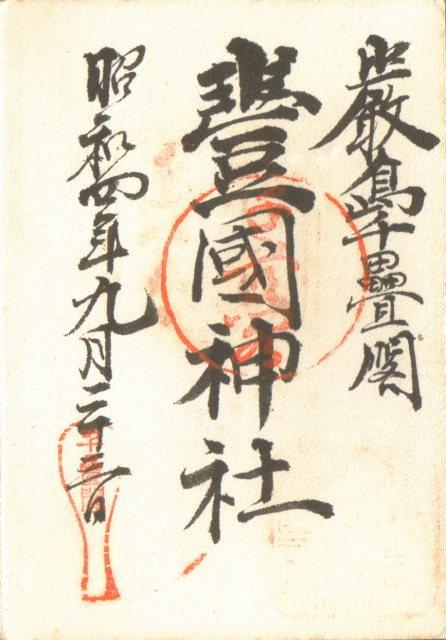 嚴島千疊閣
豐國神社
昭和四年九月二十三日